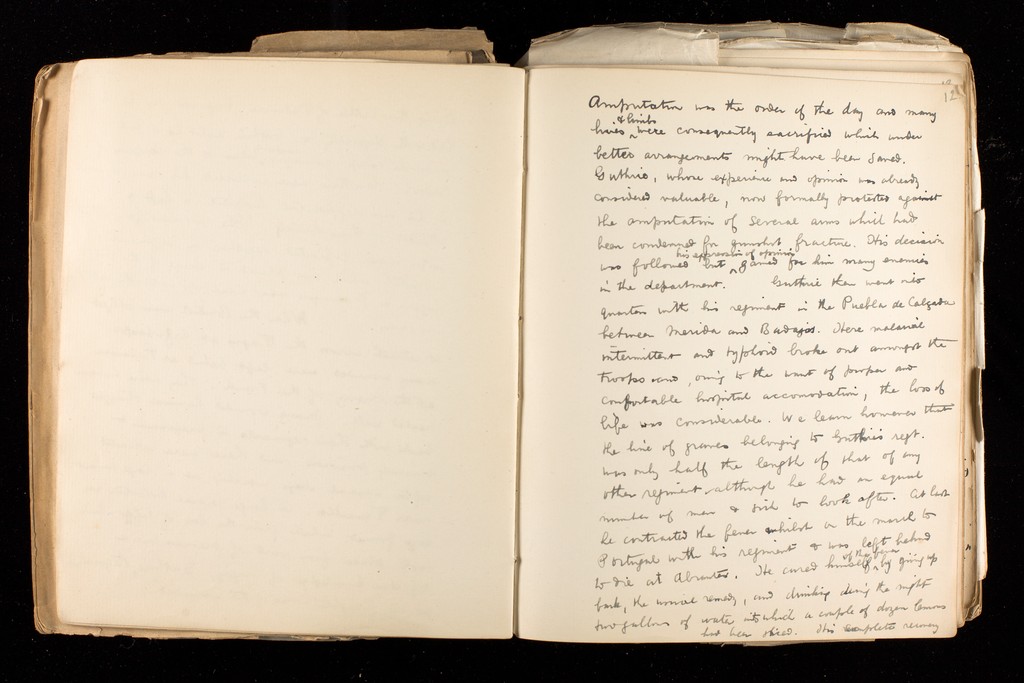 12
Amputation was the order of the day and many
& limbs
lives were consequently sacrificed which under
better arrangements might have been saved.
Guthrie, whose experience and opinion was already
considered valuable, now formally protested against
the amputation of several arms which had
been condemned for gunshot fracture. His decision
his expression of opinion
was followed but gained for him many enemies
in the department. Guthrie then went into
quarters with his regiment in the Puebla de Calçada
between Merida and Badajos. Here malarial
intermittent and typhoid broke out amongst the
troops and, owing to the want of proper and
comfortable hospital accomodation, the loss of
life was considerable. We learn however that
the line of graves belonging to Guthrie's regt.
was only half the length of that of any
other regiment although he had an equal
number of men & sick to look after. At last
he contracted the fever whilst on the march to
Portugal with his regiment & was left behind
of the fever
to die at Abrantes. He cured himself by giving up
bark, the usual remedy, and drinking during the night
two gallons of water into which a couple of dozen lemons
had been sliced. His complete recovery